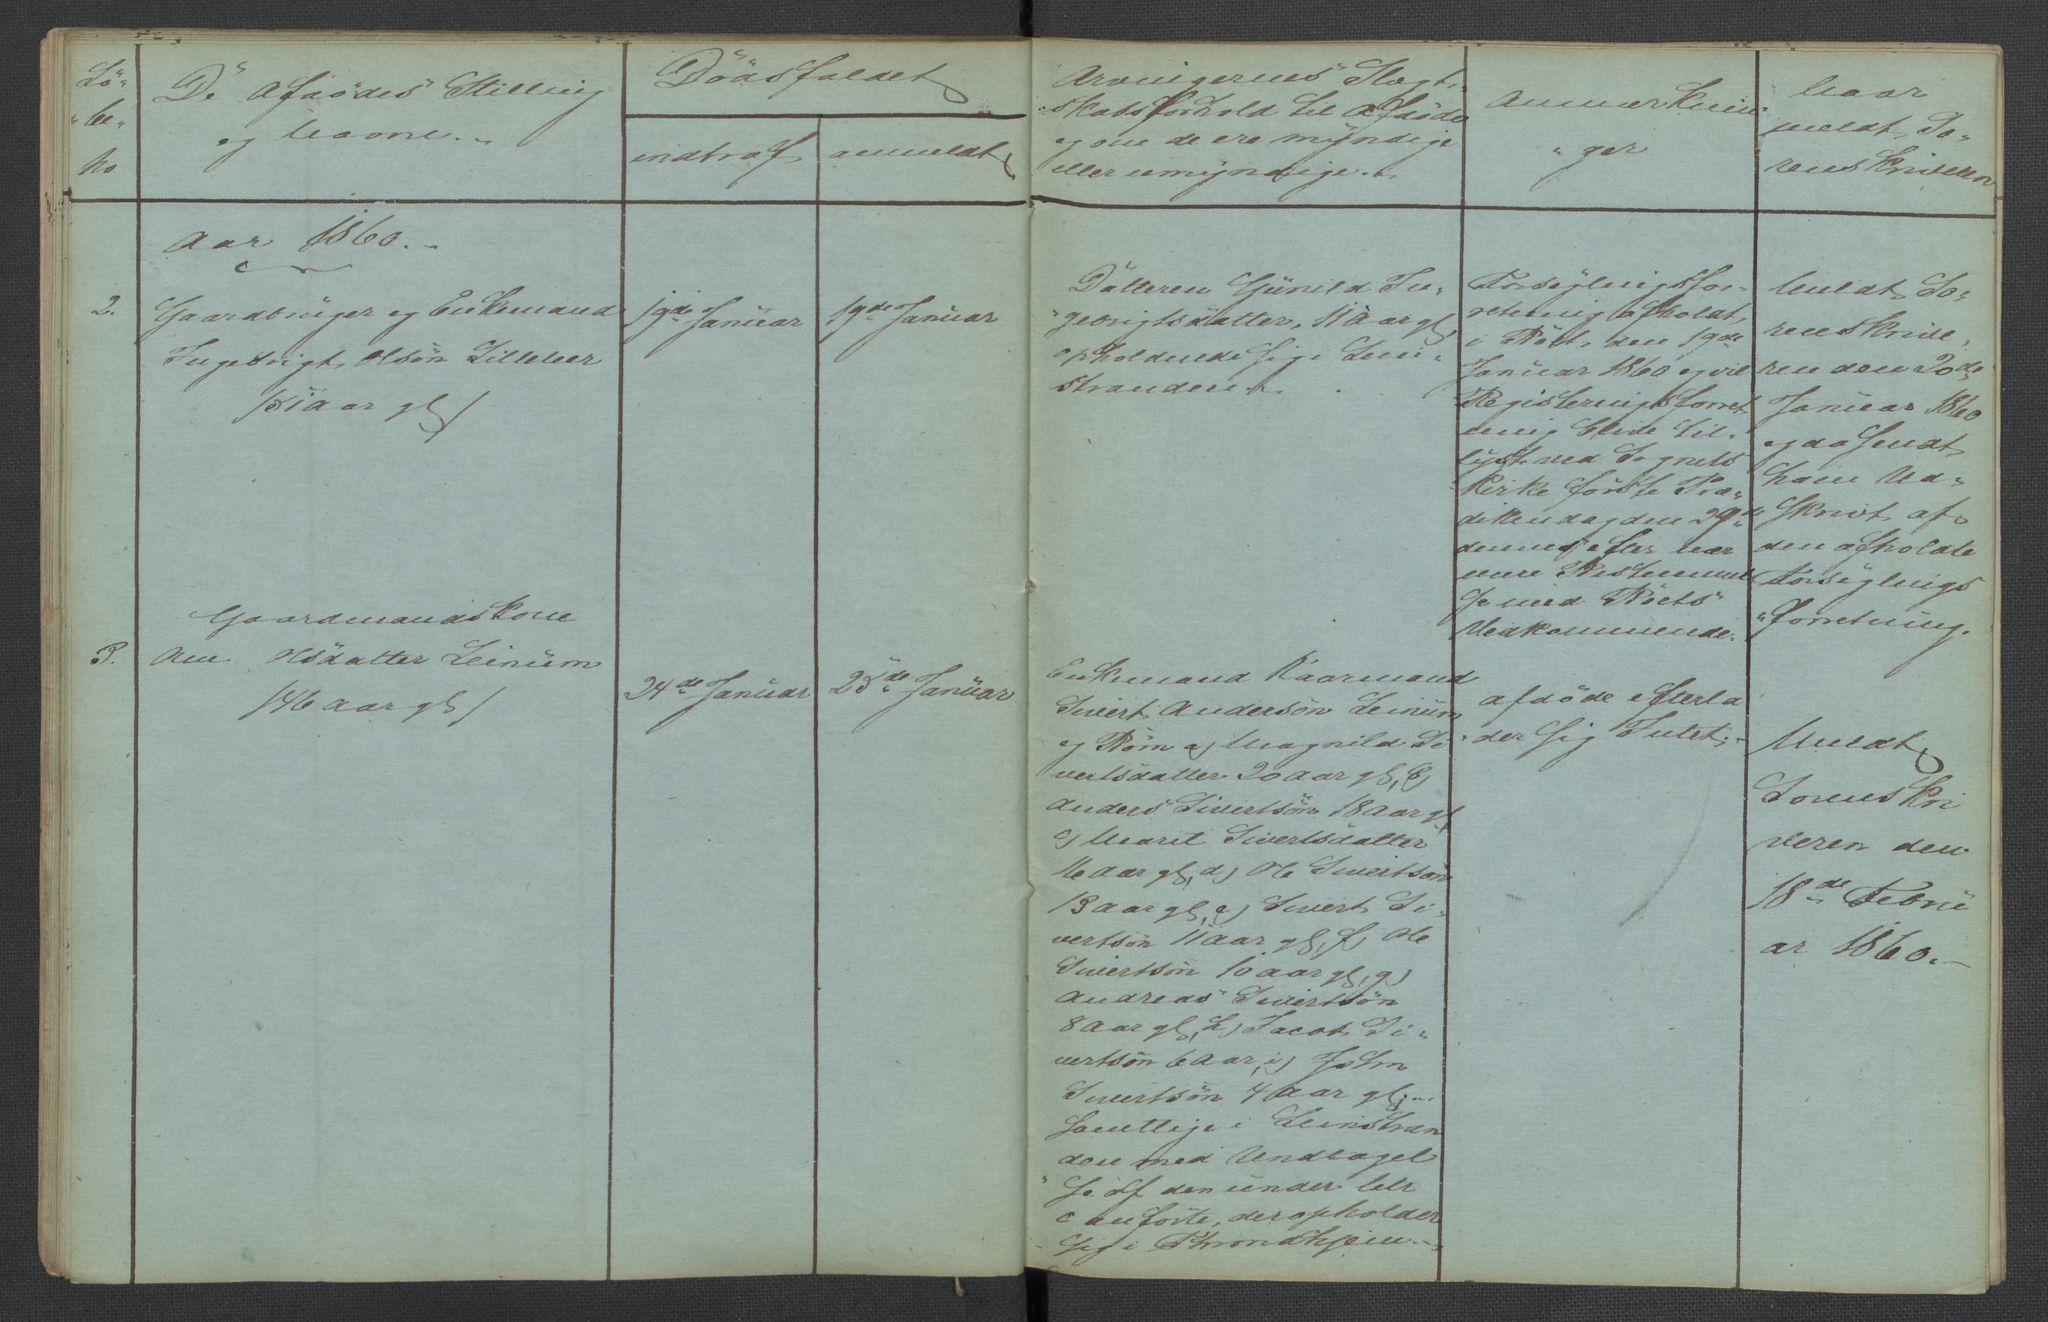 Lö-
be-
No
De Afdödes Stilling
og Navne.
Dödsfaldet
indtraf
anmeldt
Arvingernes Slegt-
skabsforhold til Afdöde
og om de ere myndige
eller umyndige.
Anmerknin-
ger
Naar
meldt So-
renskriveren
Aar 1860.
2.
Gaardbruger og Enkemand
Ingebrigt Olsön Lilleleer
/51 Aar gl/
19de Januar
19de Januar
Datteren Gunild In-
gebrigtsdatter, 11 Aar gl,
opholdende sig i Lein-
stranden.
Forseglingsfor-
retning afholdt
i Boet den 19de
Januar 1860 og vil
Registeringsforret-
ning blive til-
lyst ved Sognets
Kirke förste Præ-
dikendag den 29de
dennes efter nær
mere Bestemmel
se med Boets
Vedkommende.
Meldt So-
renskrive-
ren den 20de
Januar 1860
og da sendt
ham Ud-
skrivt af
den afholdte
Forseglings
forretning.
3.
Gaardmandskone
Ane Olsdatter Leinum
/46 Aar gl/
24de Januar
25de Januar
Enkemand Kaarmand
Sivert Andersön Leinum
og Börn a) Magnild Si-
vertsdatter 20 Aar gl, b)
Anders Sivertsön 18 Aar gl
c) Marit Sivertsdatter
16 Aar gl, d) Ole Sivertsön
13 Aar gl, e) Sivert Si-
vertsön 11 Aar gl, f) Ole
Sivertsön 10 Aar gl, g)
Andreas Sivertsön
8 Aar gl, h) Jacob Si-
vertsön 6 Aar, i) John
Sivertsön 4 Aar gl;
samtlige i Leinstran
den med Undtagel
se af den under Litr
c anförte, der opholder
sig i Throndhjem.
Afdöde efterla
der sig Intet.
Meldt
Sorenskri
veren den
18de Febru
ar 1860.